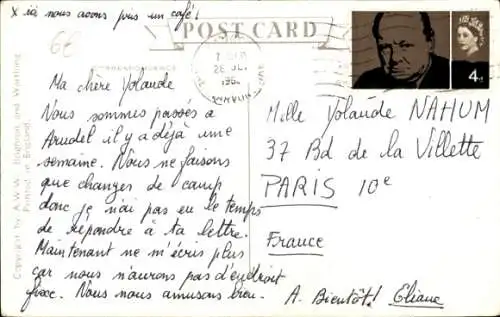 x ici nous avons pris un café!
6E
POST CARD
CORRESPONDENCE
28 JLY
196
4D
Ma chère Yolaude
Nous sommes passés à
Arudel il y a déjà une
semaine. Nous ne faisons
que changer de camp
donc je n'ai pas eu le temps
de répondre à ta lettre.
Maintenant ne m'écris plus
car nous n'aurons pas d'endroit
fixe. Nous nous amusons bien.
A. Bientôt! Eliane
Melle Yolaude NAHUM
37 Bd de la Villette
PARIS 10e
France
Copyright by A.W.W. Brighton and Worthing
Printed in England